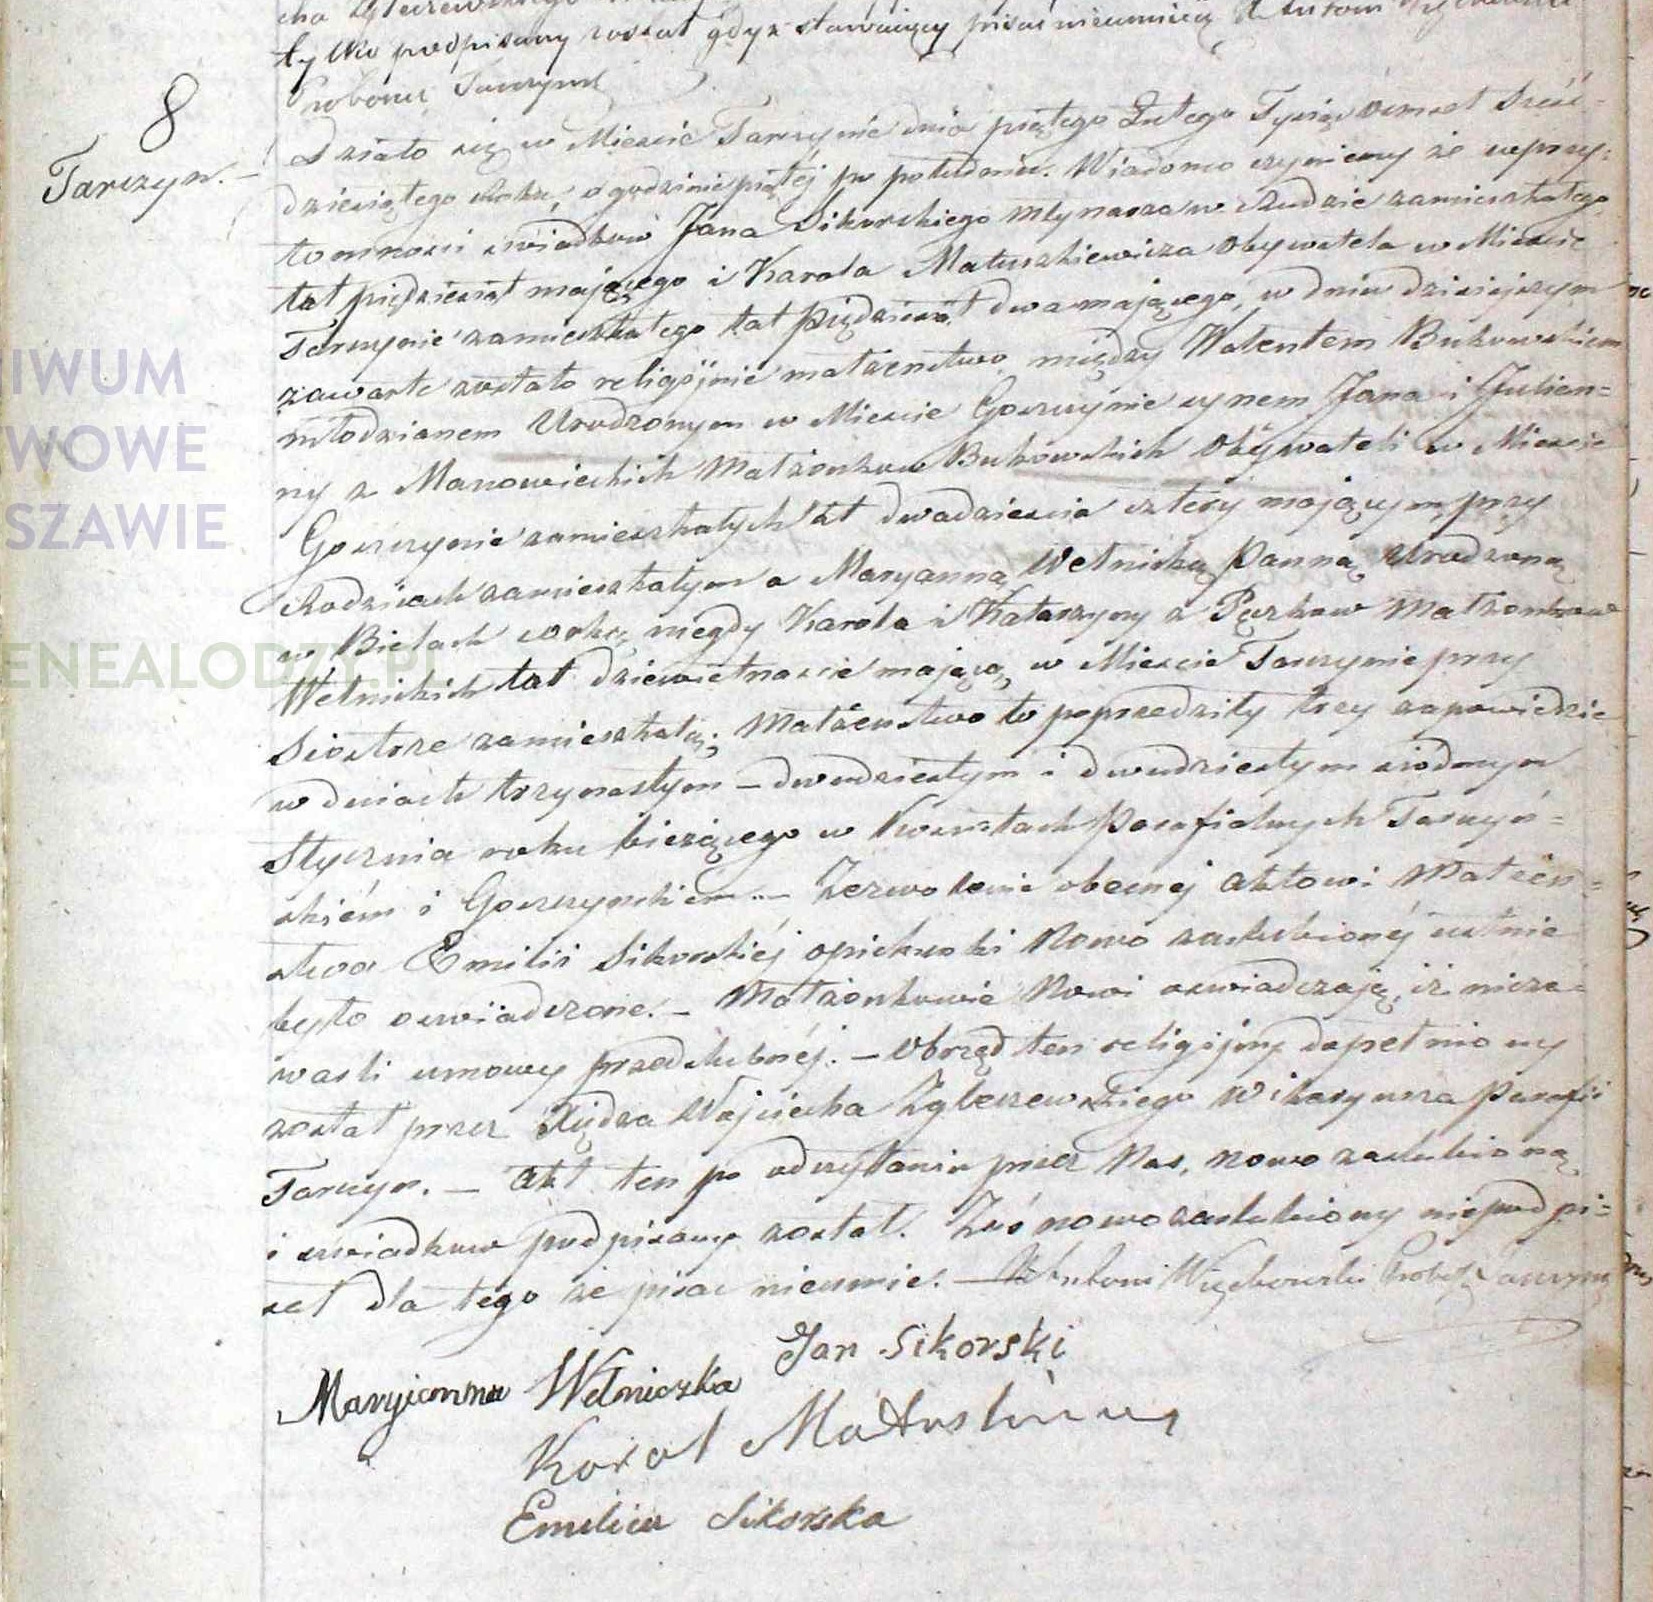 tylko podpisany został gdyż stawaiący pisać nieumieią
Proboszcz Tarczyns
8
Tarczyn.
Działo się w Mieście Tarczynie dnia piątego Lutego Tysiąc ośmset Sześć=
dziesiątego Roku, o godzinie piątej po południu. Wiadomo czyniemy że w przy=
tomności świadków Jana Sikorskiego Młynarza w Rudzie zamieszkałego
lat pięćdziesiąt mającego i Karola Matuszkiewicza Obywatela w Mieście
Tarczynie zamieszkałego lat pięćdziesiąt dwa mającego, w dniu dzisiejszym
zawarte zostało religijnie małżeństwo między Walentem Bukowskiem
młodzianem Urodzonym w Mieście Goszczynie synem Jana i Julien=
ny z Manowieckich Małżonków Bukowskich Obywateli w Mieście
Goszczynie zamieszkałych lat dwadzieścia cztery mającym, przy
Rodzicach zamieszkałym a Maryanną Wełnicką Panną Urodzoną
w Bielach córką niegdy Karola i Katarzyny z Pęzków Małżonków
Wełnickich lat dziewietnaście mającą, w Mieście Tarczynie przy
Siostrze zamieszkałą. Małżeństwo to poprzedziły trzy zapowiedzie
w dniach trzynastym – dwudziestym i dwudziestym siódmym
Stycznia roku bieżącego w Kościołach Parafialnych Tarczyń=
skiém i Goszczynskiem. – Zezwolenie obecnej aktowi Małżeń=
stwa Emilii Sikorskiéj opiekunki Nowo zaślubionéj ustnie
było oświadczone. – Małżonkowie Nowi oswiadczają, iż nieza=
warli umowy przedślubnéj. – Obrzęd ten religijny dopełniony
został przez Xiędza Wojciecha Zgleczewskiego Wikaryusza Parafii
Tarczyn. – Akt ten po odczytaniu przez Nas, nowo zaślubioną
i świadków podpisany został. Zaś nowo zaślubiony niepodpi=
sał dla tego że pisać nieumie. – X Antoni Więckowski Probosz Tarczyns
Jan Sikorski
Maryianna Wełniczka
Karol
Emilia Sikorska
IWUM
WOWE
SZAWIE
ENEALODZY.PL